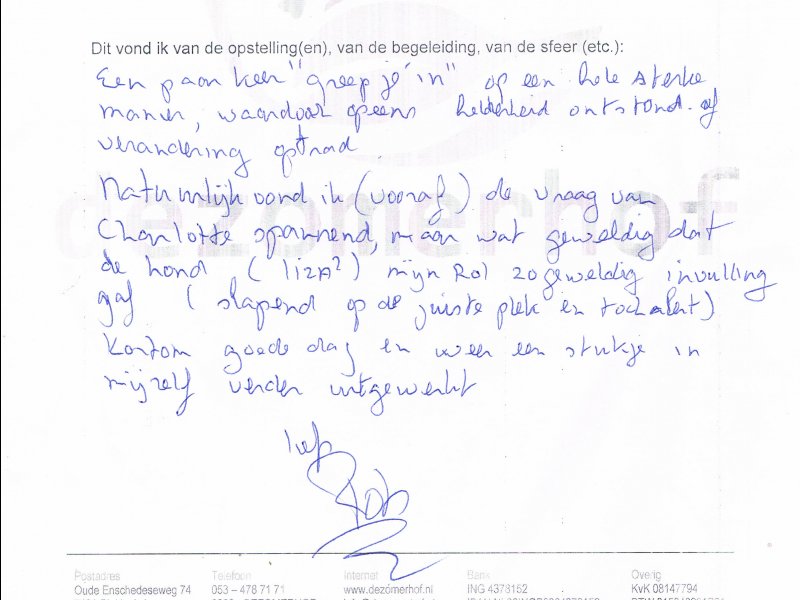 Dit vond ik van de opstelling(en), van de begeleiding, van de sfeer (etc.):
Een paar keer "greep je in" op een hele sterke
manier, waardoor opeens helderheid ontstond of
verandering optrad
Natuurlijk vond ik (vooraf) de vraag van
Charlotte spannend, maar wat geweldig dat
de hond, (lizA?) mijn Rol zo geweldig invulling
gaf (slapend op de juiste plek en toch alert)
Kortom goede dag en weer een stukje in
mijzelf verder uitgewerkt
liefs
Rob
dezomerhof
Postadres Telefoon Internet Bank Overig
Oude Enschedeseweg 74 053 – 478 71 71 www.dezomerhof.nl ING 4378152 KvK 08147794